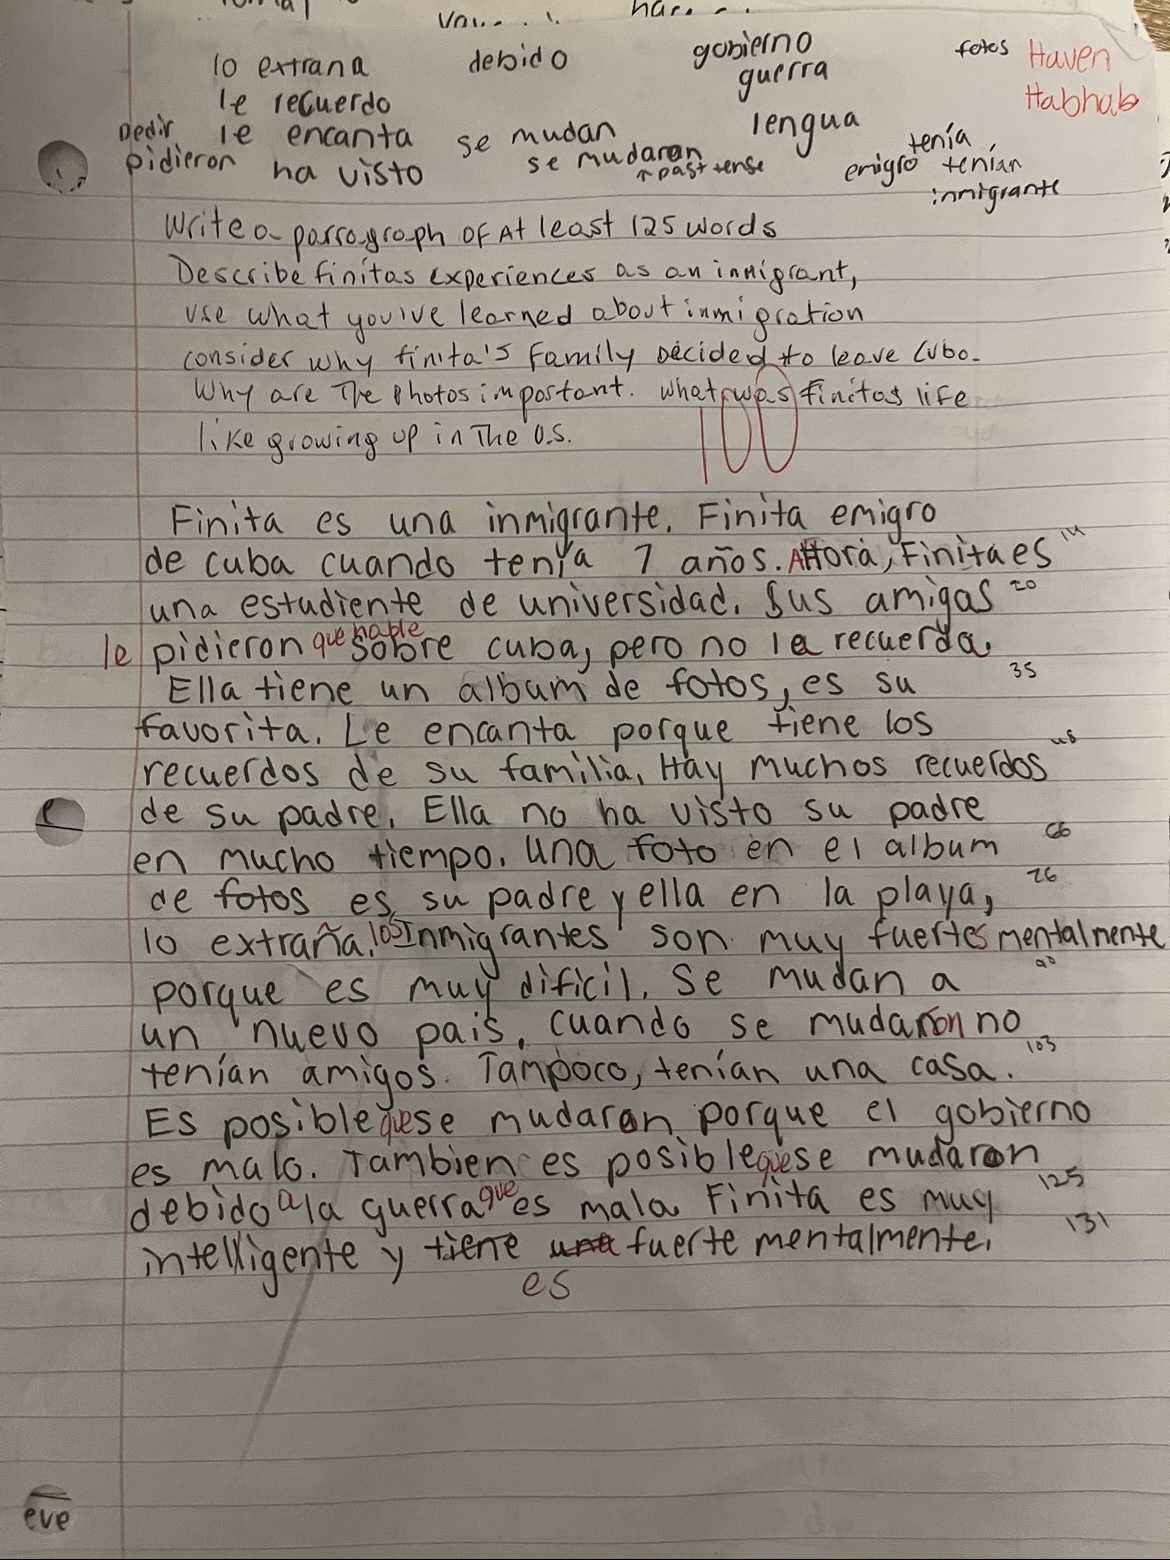 lo extrana debido gobierno fotos Haven
le recuerdo guerra Habhab
pedir le encanta se mudan lengua tenía
pidieron ha visto se mudaron ↑past tense emigro tenían
inmigrante
Write a parragraph OF At least 125 words
Describe finitas experiences as an inmigrant,
use what you've learned about inmigration
consider why finita's Family Decided to leave Cuba.
Why are The Photos important. what was finitas life
like growing up in The U.S.
100
Finita es una inmigrante. Finita emigro
de cuba cuando tenía 7 años. Ahora, Finita es 14
una estudiante de universidad. Sus amigas 20
le pidieron que hable sobre cuba, pero no la recuerda.
Ella tiene un album de fotos, es su 35
favorita. Le encanta porque tiene los
recuerdos de su familia. Hay muchos recuerdos 48
de su padre. Ella no ha visto su padre
en mucho tiempo. Una foto en el album 66
de fotos es su padre y ella en la playa, 76
lo extraña. los Inmigrantes son muy fuertes mentalmente
porque es muy dificil. Se mudan a 90
un nuevo pais. Cuando se mudaron no
tenían amigos. Tampoco, tenían una casa. 103
Es posible que se mudaran porque el gobierno
es malo. Tambien es posible que se mudaron
debido a la guerra que es mala. Finita es muy 125
intelligente y tiene una fuerte mentalmente. 131
es
eve